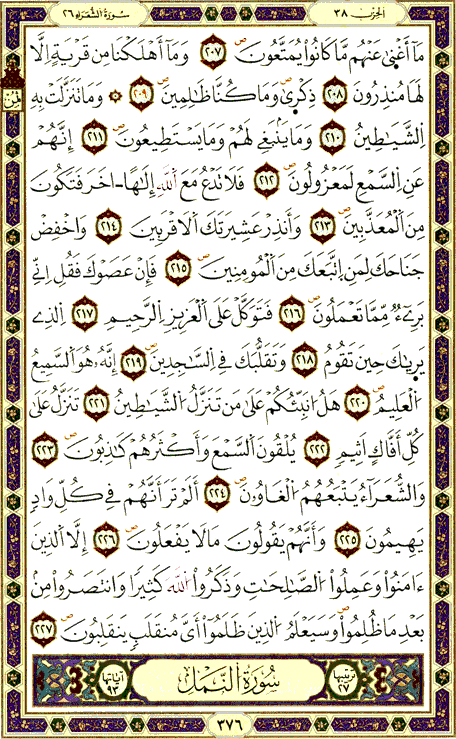 سُورَةُ الشُّعَرَاءِ ٢٦
الحِزْبُ ٣٨
مَا أَغْنَىٰ عَنْهُم مَّا كَانُوا يُمَتَّعُونَ ٢٠٧ وَمَا أَهْلَكْنَا مِن قَرْيَةٍ اِلَّا
لَهَا مُنذِرُونَ ٢٠٨ ذِكْرٰى وَمَا كُنَّا ظَالِمِينَ ٢٠٩ ۞ وَمَا تَنَزَّلَتْ بِهِ
اِلشَّيَاطِينُ ٢١٠ وَمَا يَنۢبَغِي لَهُمْ وَمَا يَسْتَطِيعُونَ ٢١١ إِنَّهُمْ
عَنِ اِلسَّمْعِ لَمَعْزُولُونَ ٢١٢ فَلَا تَدْعُ مَعَ اَللَّهِ إِلَـٰهًا اٰخَرَ فَتَكُونَ
مِنَ اَلْمُعَذَّبِينَ ٢١٣ وَأَنذِرْ عَشِيرَتَكَ اَلَاقْرَبِينَ ٢١٤ وَاخْفِضْ
جَنَاحَكَ لِمَنِ اِتَّبَعَكَ مِنَ اَلْمُومِنِينَ ٢١٥ فَإِنْ عَصَوْكَ فَقُلِ اِنِّي
بَرِيٓءٌ مِّمَّا تَعْمَلُونَ ٢١٦ فَتَوَكَّلْ عَلَى اَلْعَزِيزِ اِلرَّحِيمِ ٢١٧ اِلذِي
يَرٰىكَ حِينَ تَقُومُ ٢١٨ وَتَقَلُّبَكَ فِي اِلسَّاجِدِينَ ٢١٩ إِنَّهُ هُوَ اَلسَّمِيعُ
اَلْعَلِيمُ ٢٢٠ هَلُ انَبِّئُكُمْ عَلَىٰ مَن تَنَزَّلُ اُلشَّيَاطِينُ ٢٢١ تَنَزَّلُ عَلَىٰ
كُلِّ أَفَّاكٍ اَثِيمٍ ٢٢٢ يُلْقُونَ اَلسَّمْعَ وَأَكْثَرُهُمْ كَاذِبُونَ ٢٢٣
وَالشُّعَرَاءُ يَتْبَعُهُمُ اُلْغَاوُونَ ٢٢٤ أَلَمْ تَرَ أَنَّهُمْ فِي كُلِّ وَادٍ
يَهِيمُونَ ٢٢٥ وَأَنَّهُمْ يَقُولُونَ مَا لَا يَفْعَلُونَ ٢٢٦ إِلَّا اَلذِينَ
ءَامَنُوا وَعَمِلُوا اُلصَّالِحَاتِ وَذَكَرُوا اُللَّهَ كَثِيرًا وَانتَصَرُوا مِنۢ
بَعْدِ مَا ظُلِمُوا وَسَيَعْلَمُ اُلذِينَ ظَلَمُوا أَيَّ مُنقَلَبٍ يَنقَلِبُونَ ٢٢٧
ترتيبها ٢٧
سُورَةُ اُلنَّمْلِ
آياتها ٩٣
٣٧٦